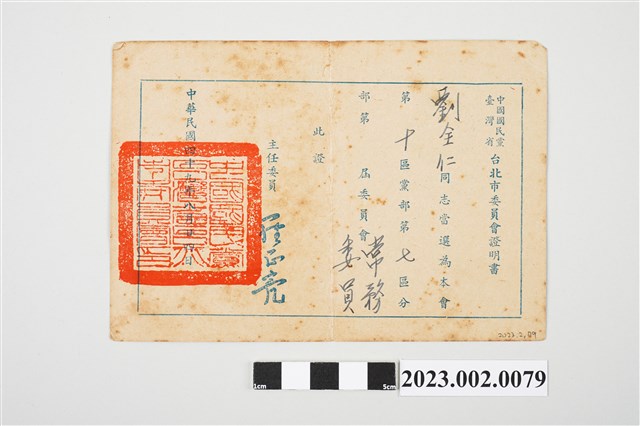 中國國民黨
臺灣省
台北市委員會證明書
劉全仁同志當選為本會
第十區黨部第七區分
部第 屆委員會常務
委員
此證
主任委員
中華民國四十九年八月 日
2023.2.79
1cm 5cm
2023.002.0079